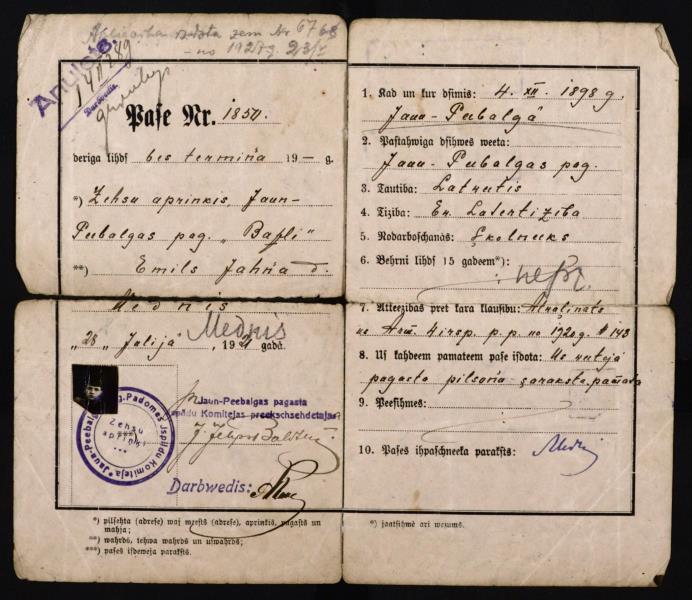 Apliecība izdota zem Nr 6768
no 1927 g. 23/V
Anulēts.
Darbwedis
Paſe Nr. 1850.
deriga lihdſ bes termiņa 19 — g.
*) Zehsu aprinķis, Jaun-
Peebalgas pag. „Baſļi"
**) Emils Jahņa d.
Mednis
Mednis
„28" Julijā, 1921 gadā.
Jaun-Peebalgas pagasta
Ispildu Komitejas preekschsehdetajs:
Jaun-Peebalgas pag. Padomes Ispildu Komiteja
Zehsu
aprinķī
Darbwedis:
*) pilſehta (adreſe) waj mzeſts (adreſe), aprinķis, pagaſts un
mahja;
**) wahrds, tehwa wahrds un uſwahrds;
***) paſes iſdeweja parakſts.
1. Kad un kur dſimis: 4. XII. 1898 g.
Jaun-Peebalgā
2. Paſtahwiga dſihwes weeta:
Jaun-Peebalgas pag.
3. Tautiba: Latweetis
4. Tiziba: Ew. Lutertiziba
5. Nodarboſchanàs: Skolneeks
6. Behrni lihdſ 15 gadeem*):
7. Atteezibas pret kara klauſibu: Atwaļinats
no Arm. 4 irsp. p. p. no 1920 g. # 143
8. Uſ kahdeem pamateem paſe iſdota: Us wetejā
pagasta pilsoņa saraksta pamata
9. Peeſihmes:
10. Paſes ihpaſchneeka parakſts:
*) jaatſihmè ari wezums.